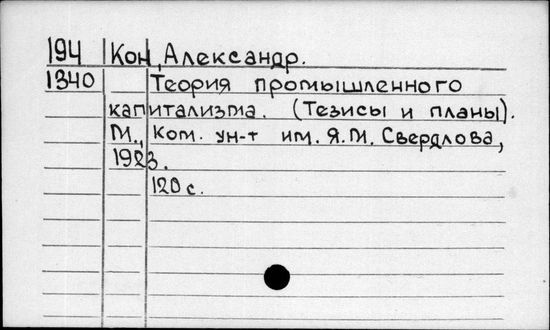 194 Кон, Александр.
1340 Теория промышленного
капитализма. (Тезисы и планы).
М., Ком. ун-т им. Я.М. Свердлова,
1923.
120 с.